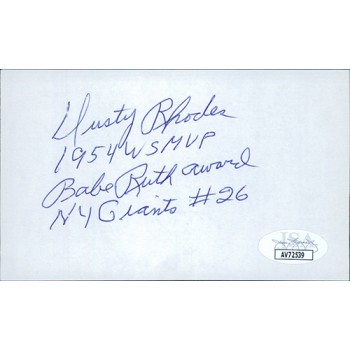 Dusty Rhodes
1954 WSMVP
Babe Ruth award
NY Giants #26
JSA
AV72539